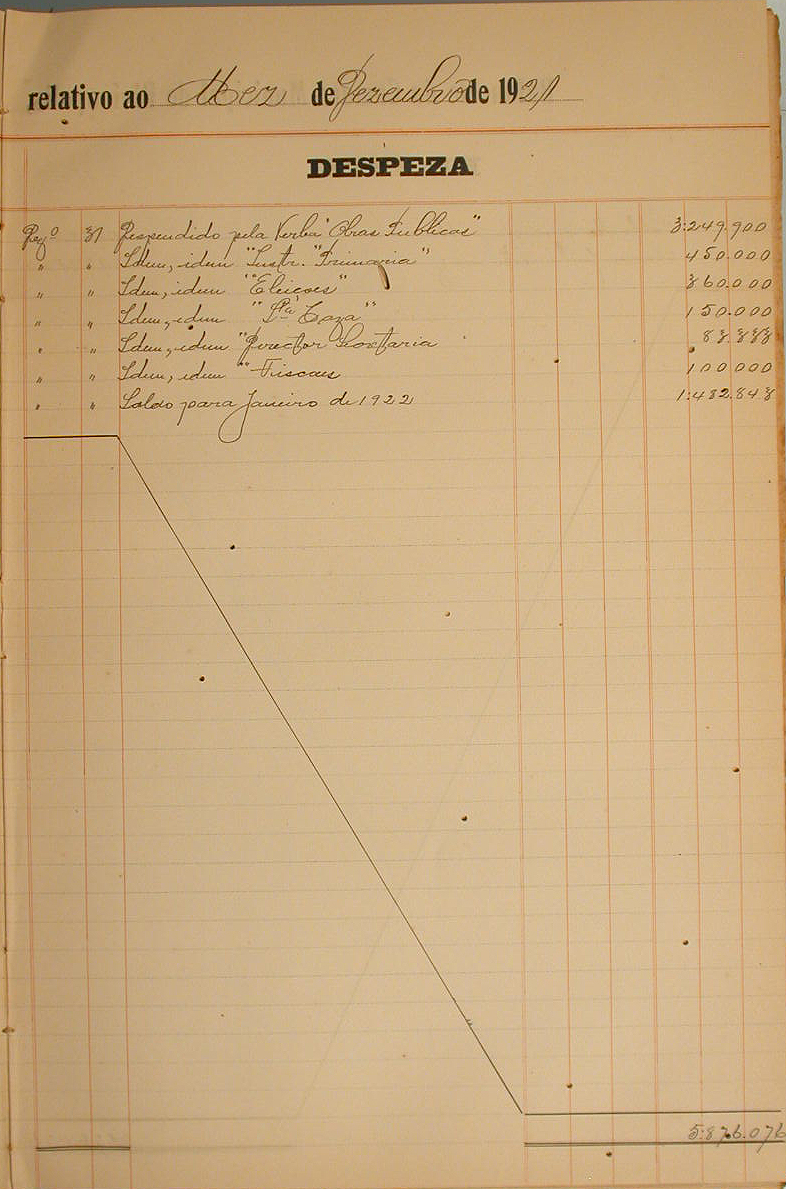 relativo ao Mez de Dezembro de 1921
DESPEZA
Dezº 31 Despendido pela Verba "Obras Publicas" 3:249.900
" " Idem, idem "Instr. "Primaria" 450.000
" " Idem, idem "Eleiçoes" 360.000
" " Idem, idem "Sta Caza" 150.000
" " Idem, idem "Director 83.333
" " Idem, idem "Fiscaes 100.000
" " Saldo para Janeiro de 1922 1:482.843
5:876.076